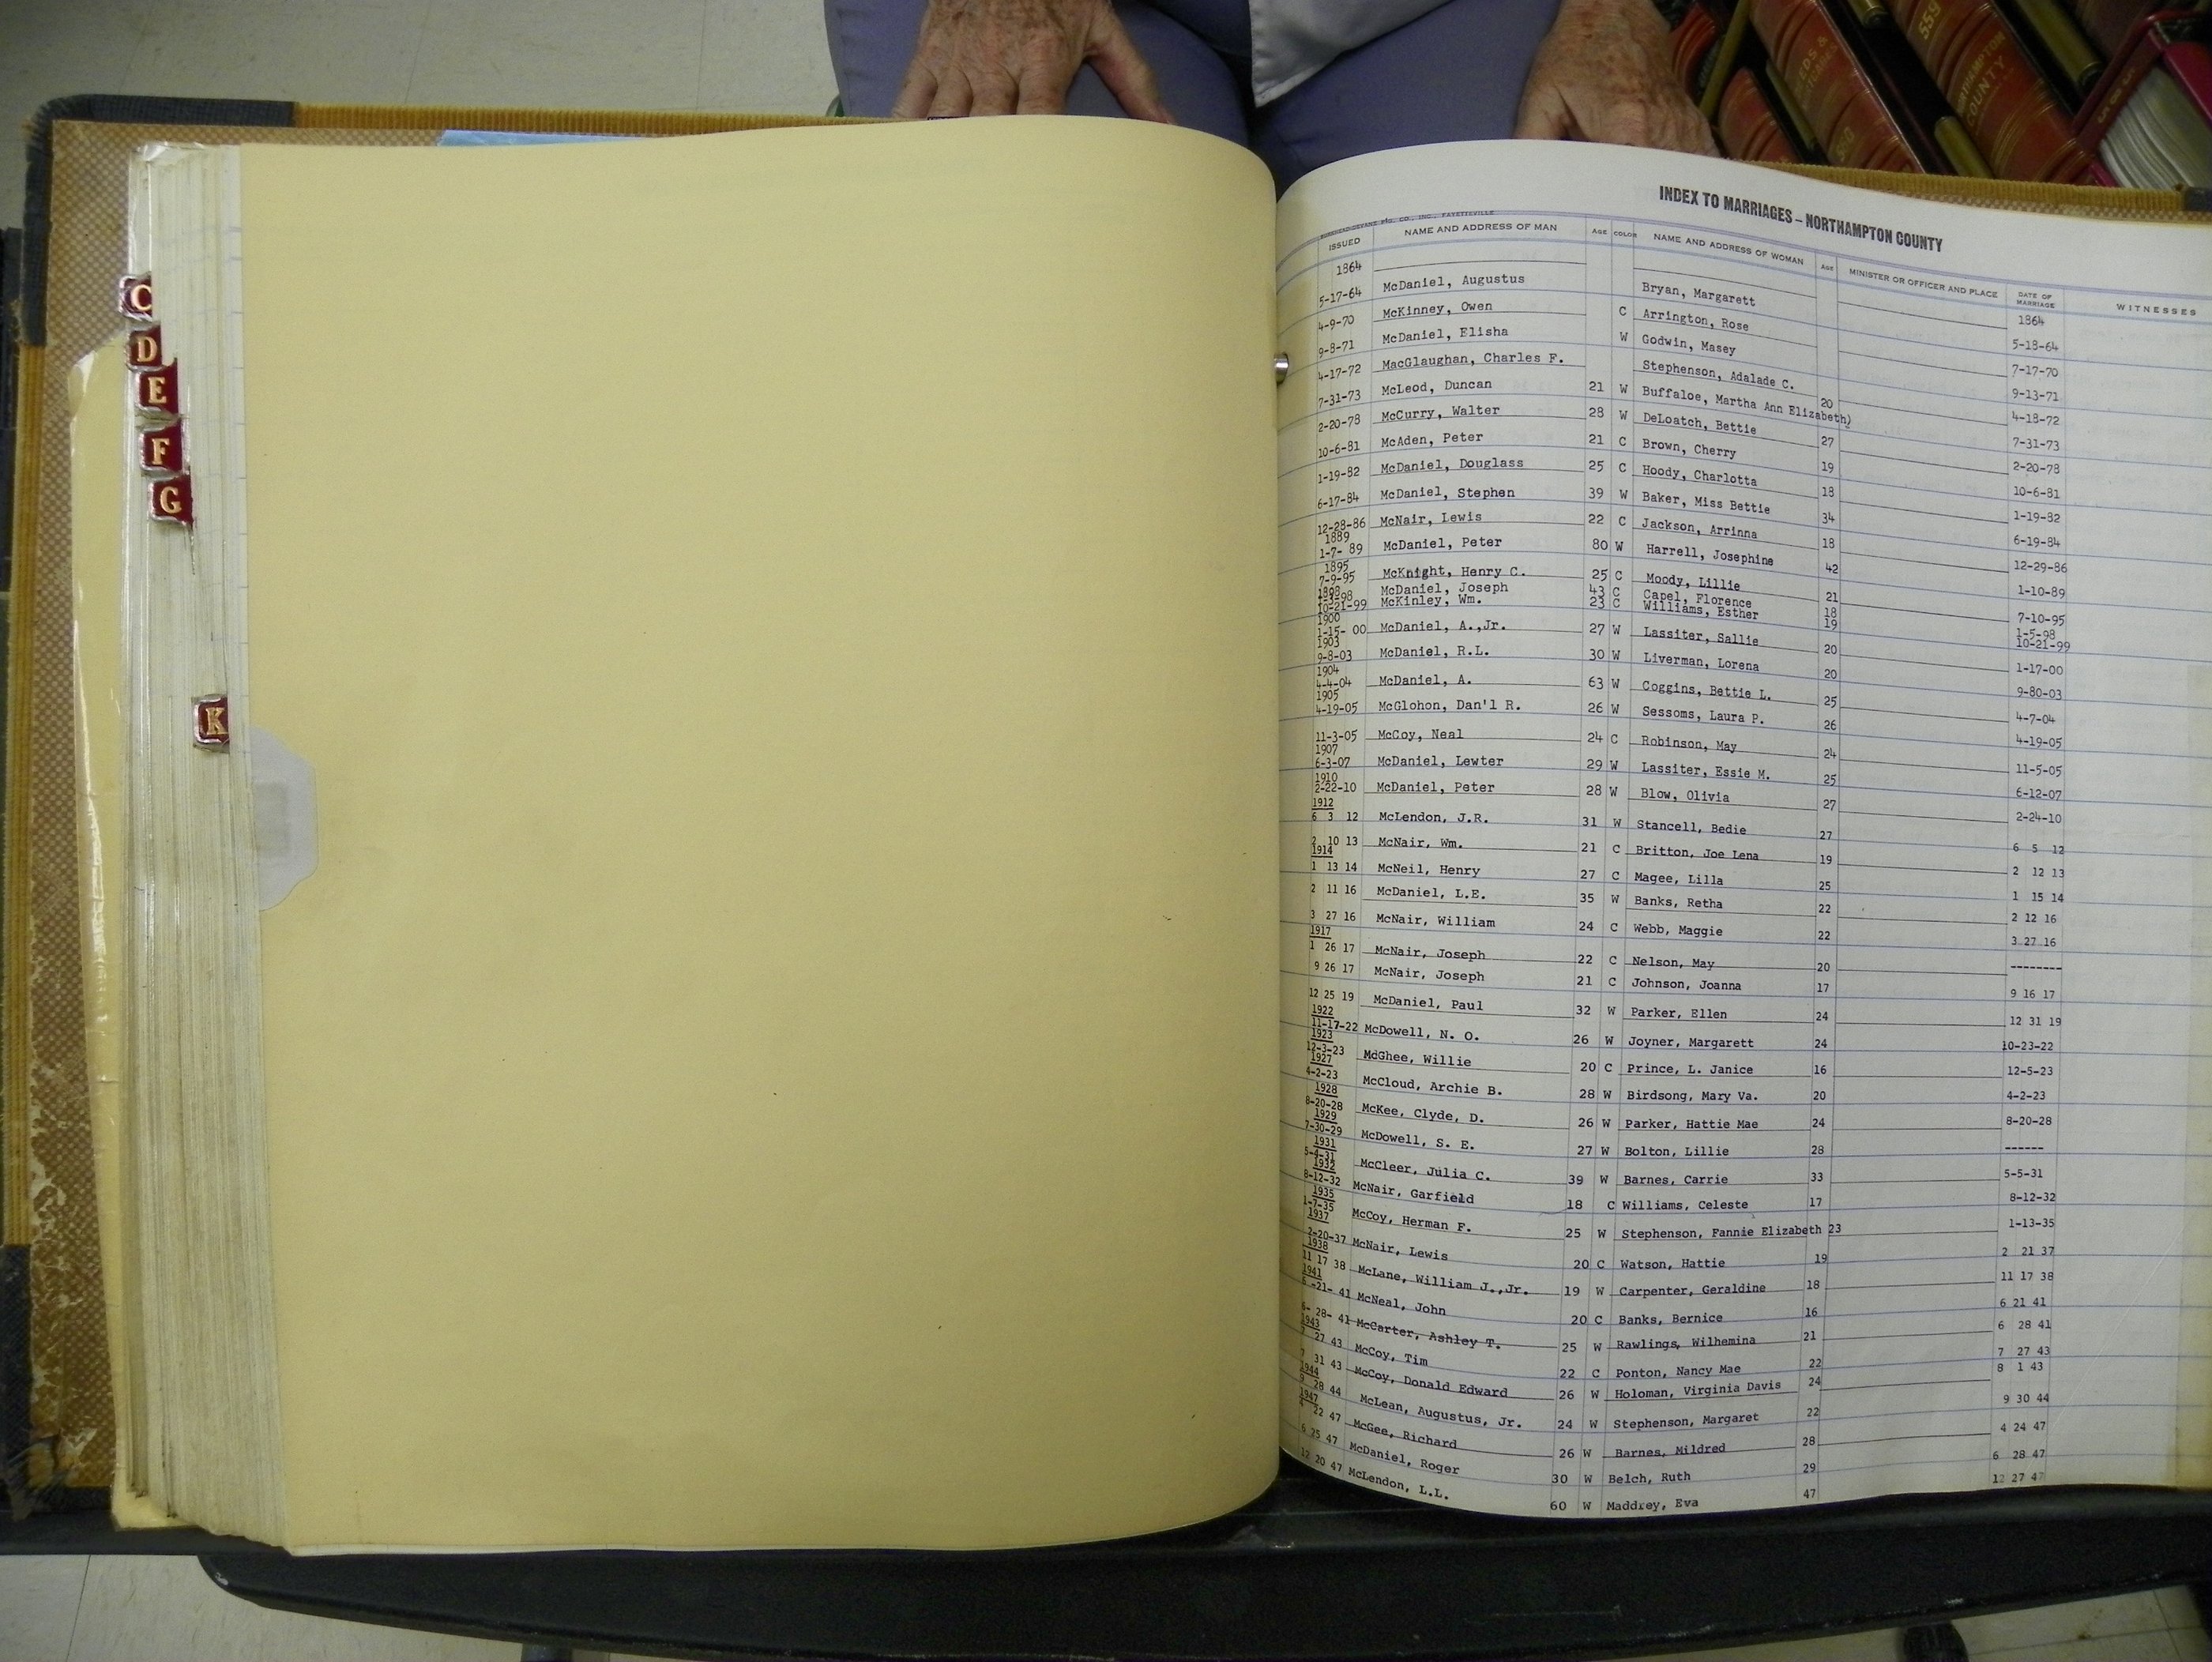 C
D
E
F
G
K
EDS &
550
559
NORTHAMPTON
COUNTY
INDEX TO MARRIAGES – NORTHAMPTON COUNTY
ISSUED NAME AND ADDRESS OF MAN AGE COLOR NAME AND ADDRESS OF WOMAN AGE MINISTER OR OFFICER AND PLACE DATE OF MARRIAGE WITNESSES
1864 1864
5-17-64 McDaniel, Augustus Bryan, Margarett 5-18-64
4-9-70 McKinney, Owen C Arrington, Rose 7-17-70
9-8-71 McDaniel, Elisha W Godwin, Masey 9-13-71
4-17-72 MacGlaughan, Charles F. Stephenson, Adalade C. 4-18-72
7-31-73 McLeod, Duncan 21 W Buffaloe, Martha Ann Elizabeth) 20 7-31-73
2-20-78 McCurry, Walter 28 W DeLoatch, Bettie 27 2-20-78
10-6-81 McAden, Peter 21 C Brown, Cherry 19 10-6-81
1-19-82 McDaniel, Douglass 25 C Hoody, Charlotta 18 1-19-82
6-17-84 McDaniel, Stephen 39 W Baker, Miss Bettie 34 6-19-84
12-28-86 McNair, Lewis 22 C Jackson, Arrinna 18 12-29-86
1889
1-7- 89 McDaniel, Peter 80 W Harrell, Josephine 42 1-10-89
1895
7-9-95 McKnight, Henry C. 25 C Moody, Lillie 21 7-10-95
McDaniel, Joseph 43 C Capel, Florence 18 1-5-98
10-21-99 McKinley, Wm. 23 C Williams, Esther 19 10-21-99
1900
1-15- 00 McDaniel, A.,Jr. 27 W Lassiter, Sallie 20 1-17-00
1903
9-8-03 McDaniel, R.L. 30 W Liverman, Lorena 20 9-80-03
1904
4-4-04 McDaniel, A. 63 W Coggins, Bettie L. 25 4-7-04
1905
4-19-05 McGlohon, Dan'l R. 26 W Sessoms, Laura P. 26 4-19-05
11-3-05 McCoy, Neal 24 C Robinson, May 24 11-5-05
1907
6-3-07 McDaniel, Lewter 29 W Lassiter, Essie M. 25 6-12-07
1910
2-22-10 McDaniel, Peter 28 W Blow, Olivia 27 2-24-10
1912
6 3 12 McLendon, J.R. 31 W Stancell, Bedie 27 6 5 12
2 10 13 McNair, Wm. 21 C Britton, Joe Lena 19 2 12 13
1914
1 13 14 McNeil, Henry 27 C Magee, Lilla 25 1 15 14
2 11 16 McDaniel, L.E. 35 W Banks, Retha 22 2 12 16
3 27 16 McNair, William 24 C Webb, Maggie 22 3 27 16
1917
1 26 17 McNair, Joseph 22 C Nelson, May 20 --------
9 26 17 McNair, Joseph 21 C Johnson, Joanna 17 9 16 17
12 25 19 McDaniel, Paul 32 W Parker, Ellen 24 12 31 19
1922
11-17-22 McDowell, N. O. 26 W Joyner, Margarett 24 10-23-22
1923
12-3-23 McGhee, Willie 20 C Prince, L. Janice 16 12-5-23
1927
4-2-23 McCloud, Archie B. 28 W Birdsong, Mary Va. 20 4-2-23
1928
8-20-28 McKee, Clyde, D. 26 W Parker, Hattie Mae 24 8-20-28
1929
7-30-29 McDowell, S. E. 27 W Bolton, Lillie 28 ------
1931
5-4-31 McCleer, Julia C. 39 W Barnes, Carrie 33 5-5-31
1932
8-12-32 McNair, Garfield 18 C Williams, Celeste 17 8-12-32
1935
1-7-35 McCoy, Herman F. 25 W Stephenson, Fannie Elizabeth 23 1-13-35
1937
2-20-37 McNair, Lewis 20 C Watson, Hattie 19 2 21 37
1938
11 17 38 McLane, William J.,Jr. 19 W Carpenter, Geraldine 18 11 17 38
1941
6 -21- 41 McNeal, John 20 C Banks, Bernice 16 6 21 41
6- 28- 41 McCarter, Ashley T. 25 W Rawlings, Wilhemina 21 6 28 41
1943
7 27 43 McCoy, Tim 22 C Ponton, Nancy Mae 22 7 27 43
7 31 43 McCoy, Donald Edward 26 W Holoman, Virginia Davis 24 8 1 43
1944
9 28 44 McLean, Augustus, Jr. 24 W Stephenson, Margaret 22 9 30 44
1947
4 22 47 McGee, Richard 26 W Barnes, Mildred 28 4 24 47
6 25 47 McDaniel, Roger 30 W Belch, Ruth 29 6 28 47
12 20 47 McLendon, L.L. 60 W Maddrey, Eva 47 12 27 47